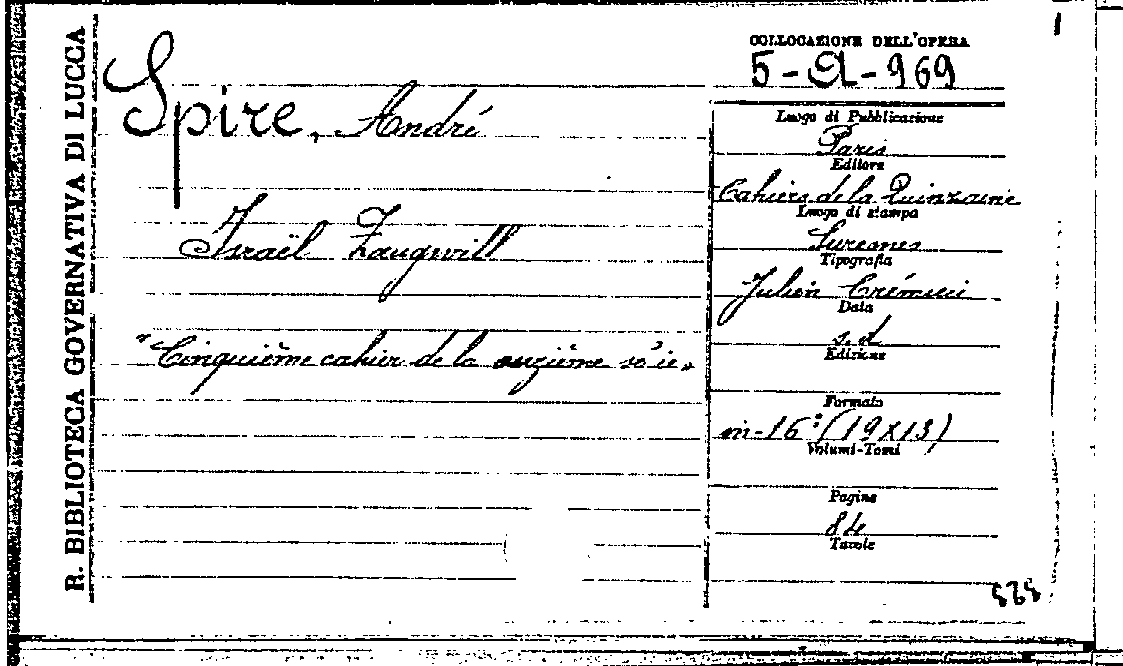 R. BIBLIOTECA GOVERNATIVA DI LUCCA
Spire, André
Israël Zangwill
"Cinquième cahier de la onzième série"
COLLOCAZIONE DELL'OPERA
5-A-969
Luogo di Pubblicazione
Paris
Editore
Cahiers de la Quinzaine
Luogo di stampa
Suresnes
Tipografia
Julien Crémieu
Data
s. d.
Edizione
Formato
in-16° (19x13)
Volumi-Tomi
Pagine
84
Tavole